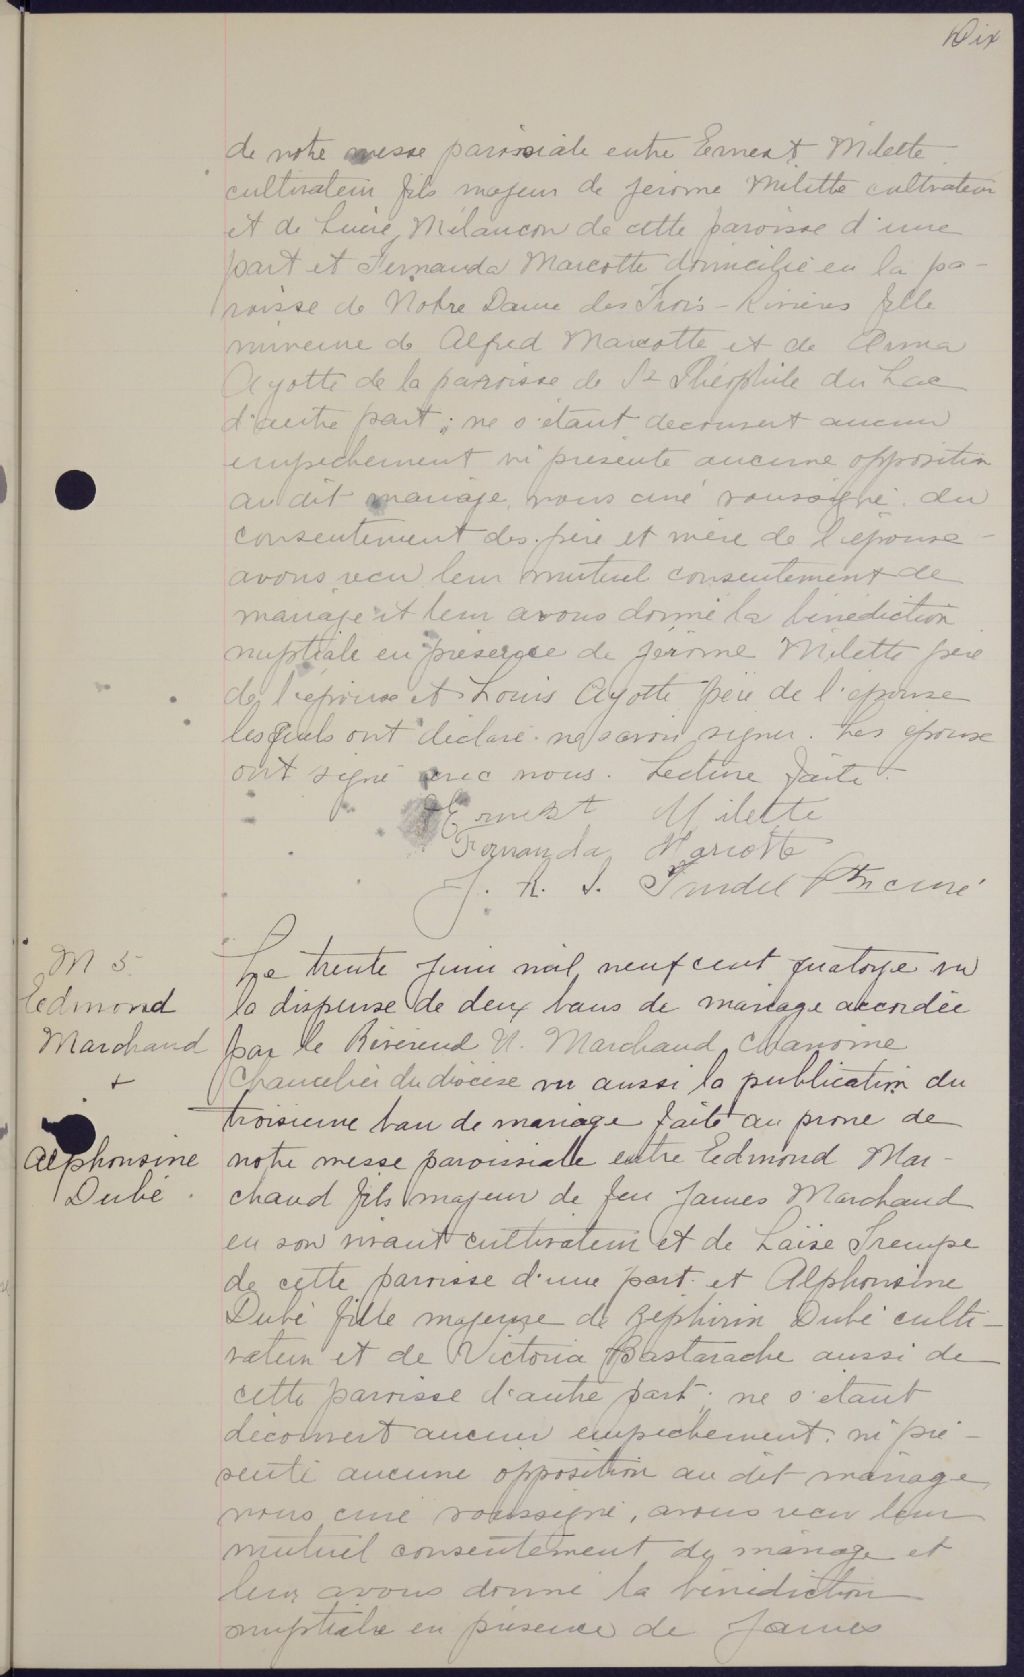 Dix
de notre messe paroissiale entre Ernest Milette
cultivateur fils majeur de Jérome Milette cultivateur
et de Lucie Mélancon de cette paroisse d'une
part et Fernanda Marcotte domicilié en la pa-
roisse de Notre Dame des Trois-Rivières fille
mineure de Alfred Marcotte et de Anna
Ayotte de la parroisse de St Théophile du Lac
d'autre part; ne s'étant decouvert aucun
empechement ni presenté aucune opposition
au dit mariage, nous curé soussigné du
consentement des père et mère de l'épouse -
avons recu leur mutuel consentement de
mariage et leur avons donné la bénédiction
nuptiale en présence de Jérôme Milette père
de l'époux et Louis Ayotte père de l'epouse
lesquels ont déclaré ne savoir signer. Les epoux
ont signé avec nous. Lecture faite.
Ernest Milette
Fernanda Marcotte
J. R. S. Trudel Ptre curé
M 5
Edmond
Marchand
+
Alphonsine
Dubé.
Le trente Juin mil neuf cent quatorze vu
la dispense de deux bans de mariage accordée
par le Révérend U. Marchand Chanoine
Chancelier du diocèse vu aussi la publication du
troisieme ban de mariage faite au prone de
notre messe paroissiale entre Edmond Mar-
chand fils majeur de feu James Marchand
en son vivant cultivateur et de Laïse Trempe
de cette paroisse d'une part et Alphonsine
Dubé fille majeure de Zéphirin Dubé culti-
vateur et de Victoria Bastarache aussi de
cette paroisse d'autre part; ne s'étant
découvert aucun empechement ni pré-
senté aucune opposition au dit mariage
nous curé soussigné, avons recu leur
mutuel consentement de mariage et
leur avons donné la bénédiction
nuptiale en présence de James